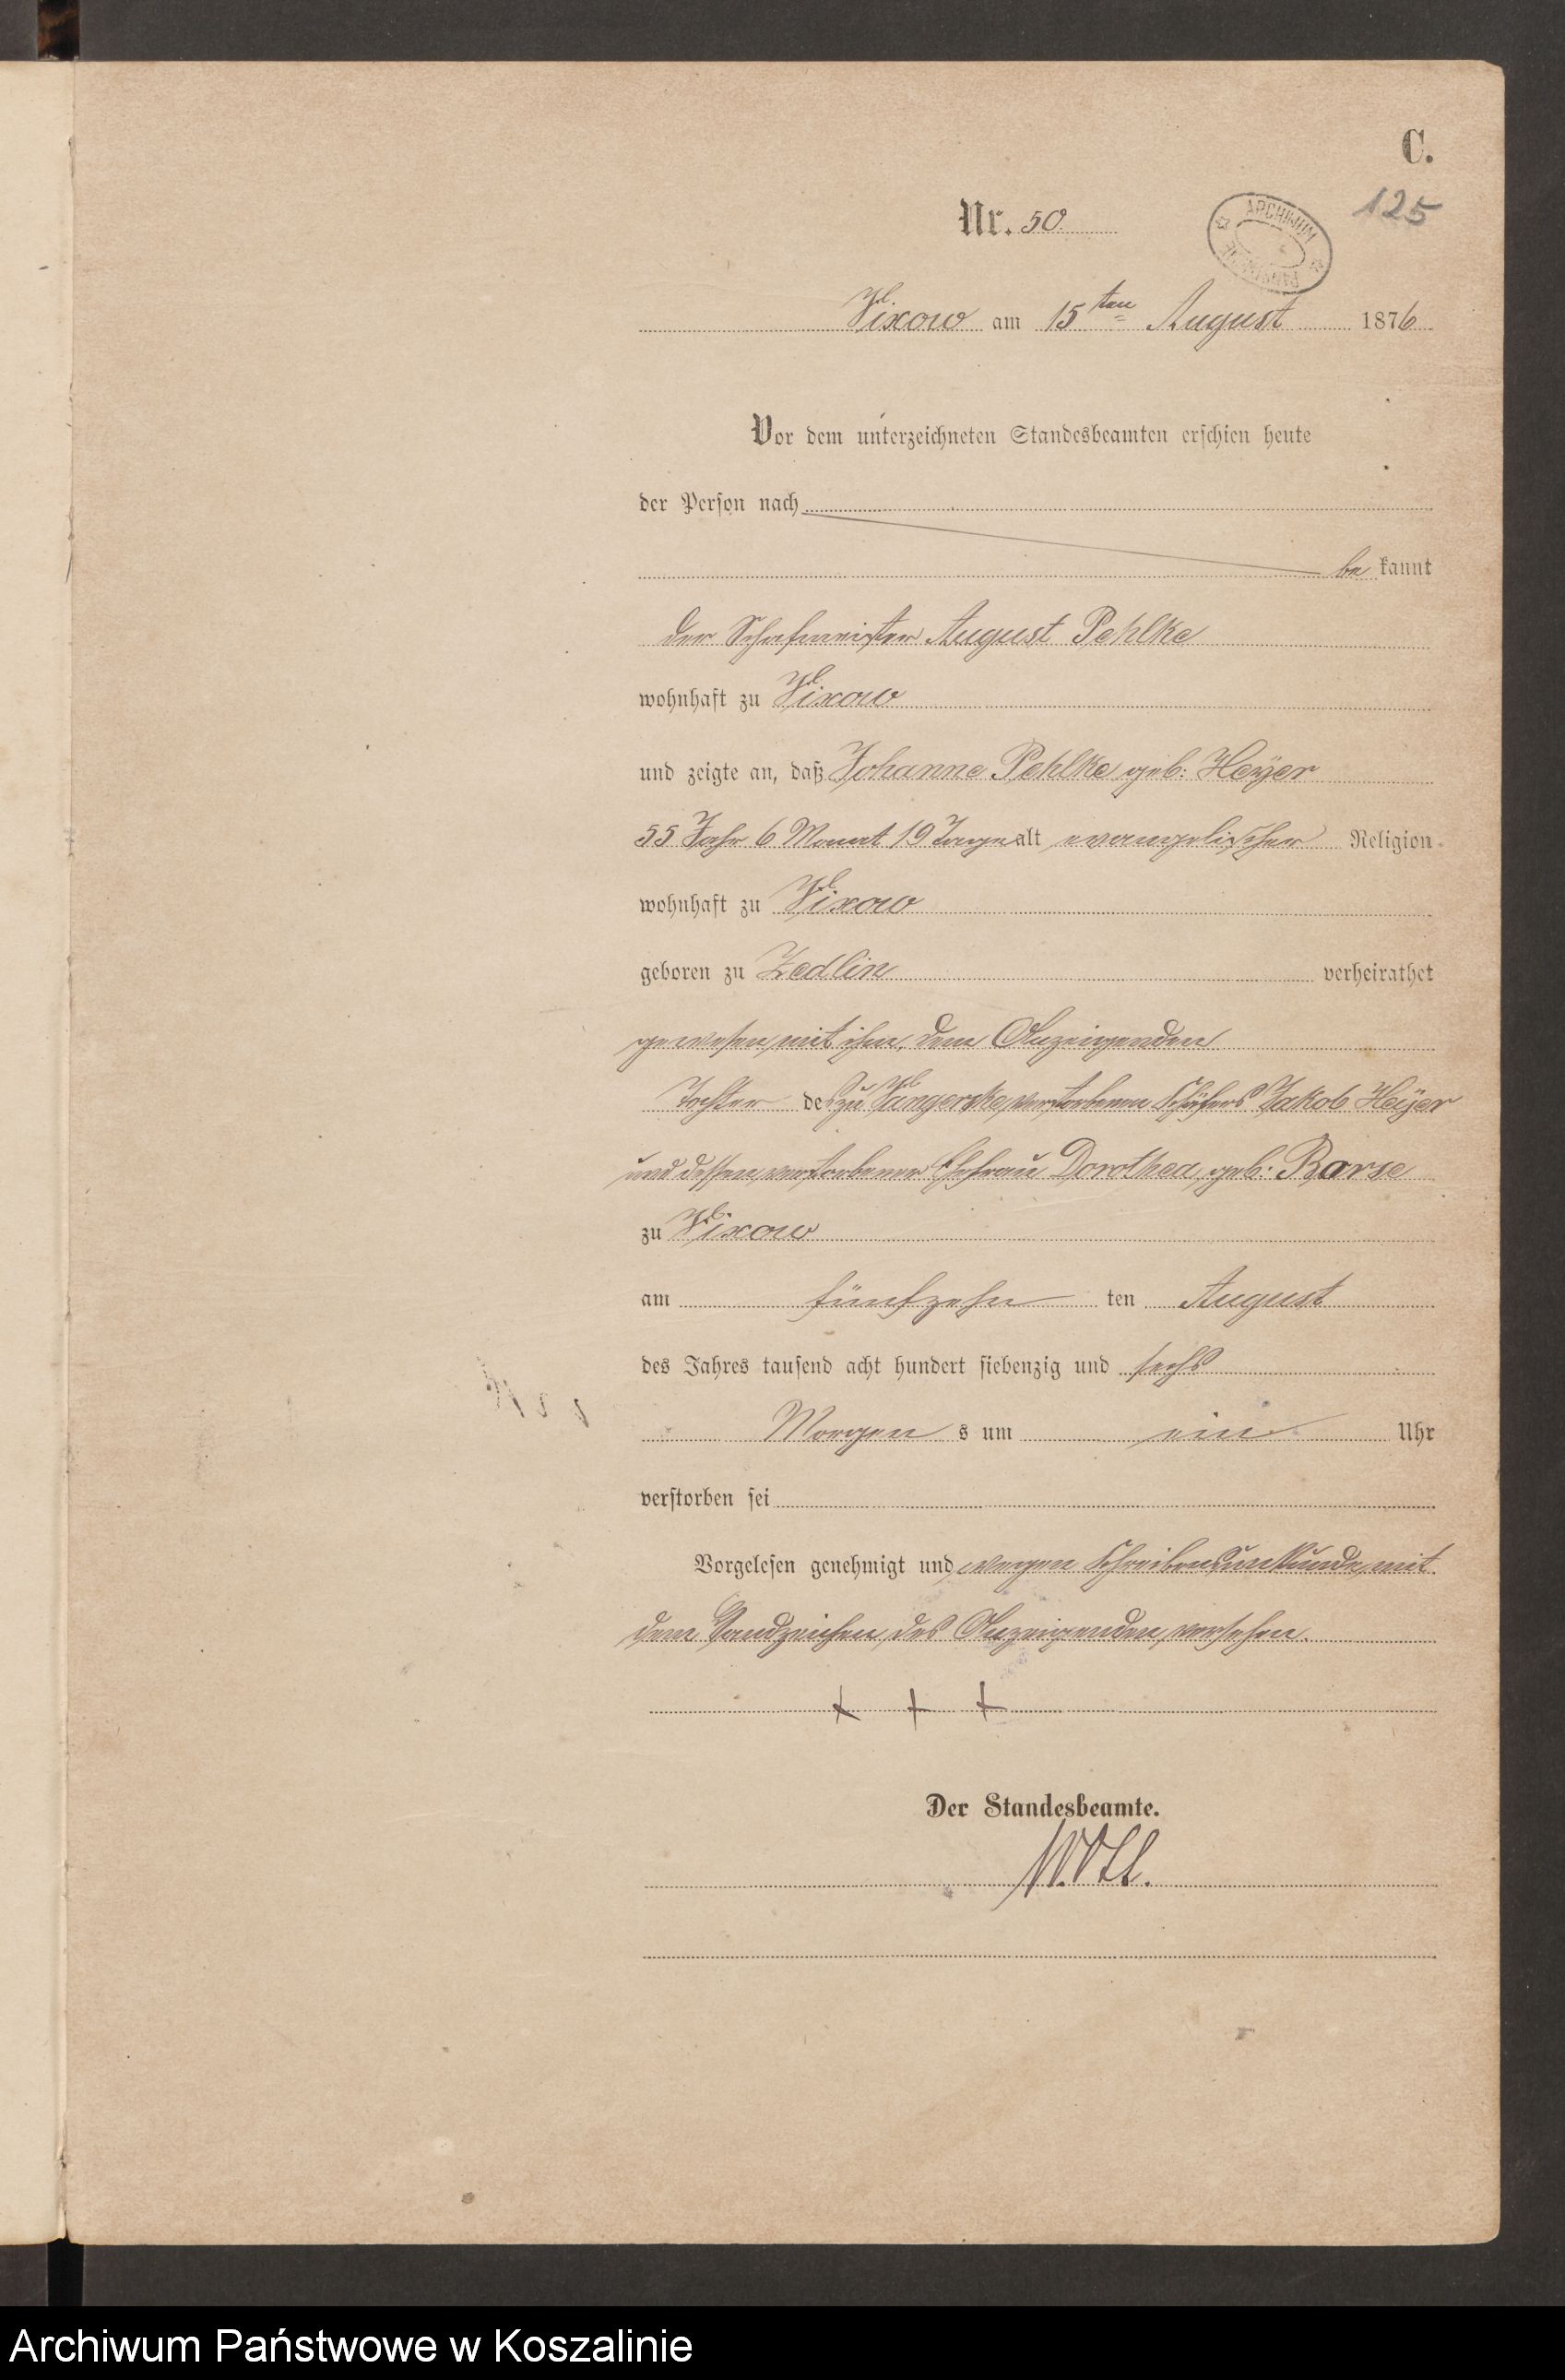 C.
125
Nr. 50.
ARCHIWUM
Vixow am 15ten August 1876
Vor dem unterzeichneten Standesbeamten erschien heute
der Person nach
be kannt
der Schafmeister August Pehlke
wohnhaft zu Vixow
und zeigte an, daß Johanne Pehlke geb: Heÿer
55 Jahr 6 Monat 19 Tage alt evangelischer Religion
wohnhaft zu Vixow
geboren zu Zedlin verheirathet
gewesen mit ihm, dem Anzeigenden
Tochter des zu Vangerske verstorbenen Schäfers Jakob Heÿer
und dessen verstorbener Ehefrau Dorothea, geb: Barse
zu Vixow
am fünfzehn ten August
des Jahres tausend acht hundert siebenzig und sechs
Morgen s um ein Uhr
verstorben sei
Vorgelesen genehmigt und wegen Schreibensunkunde mit
dem Handzeichen des Anzeigenden versehen.
+ + +
Der Standesbeamte.
Archiwum Państwowe w Koszalinie